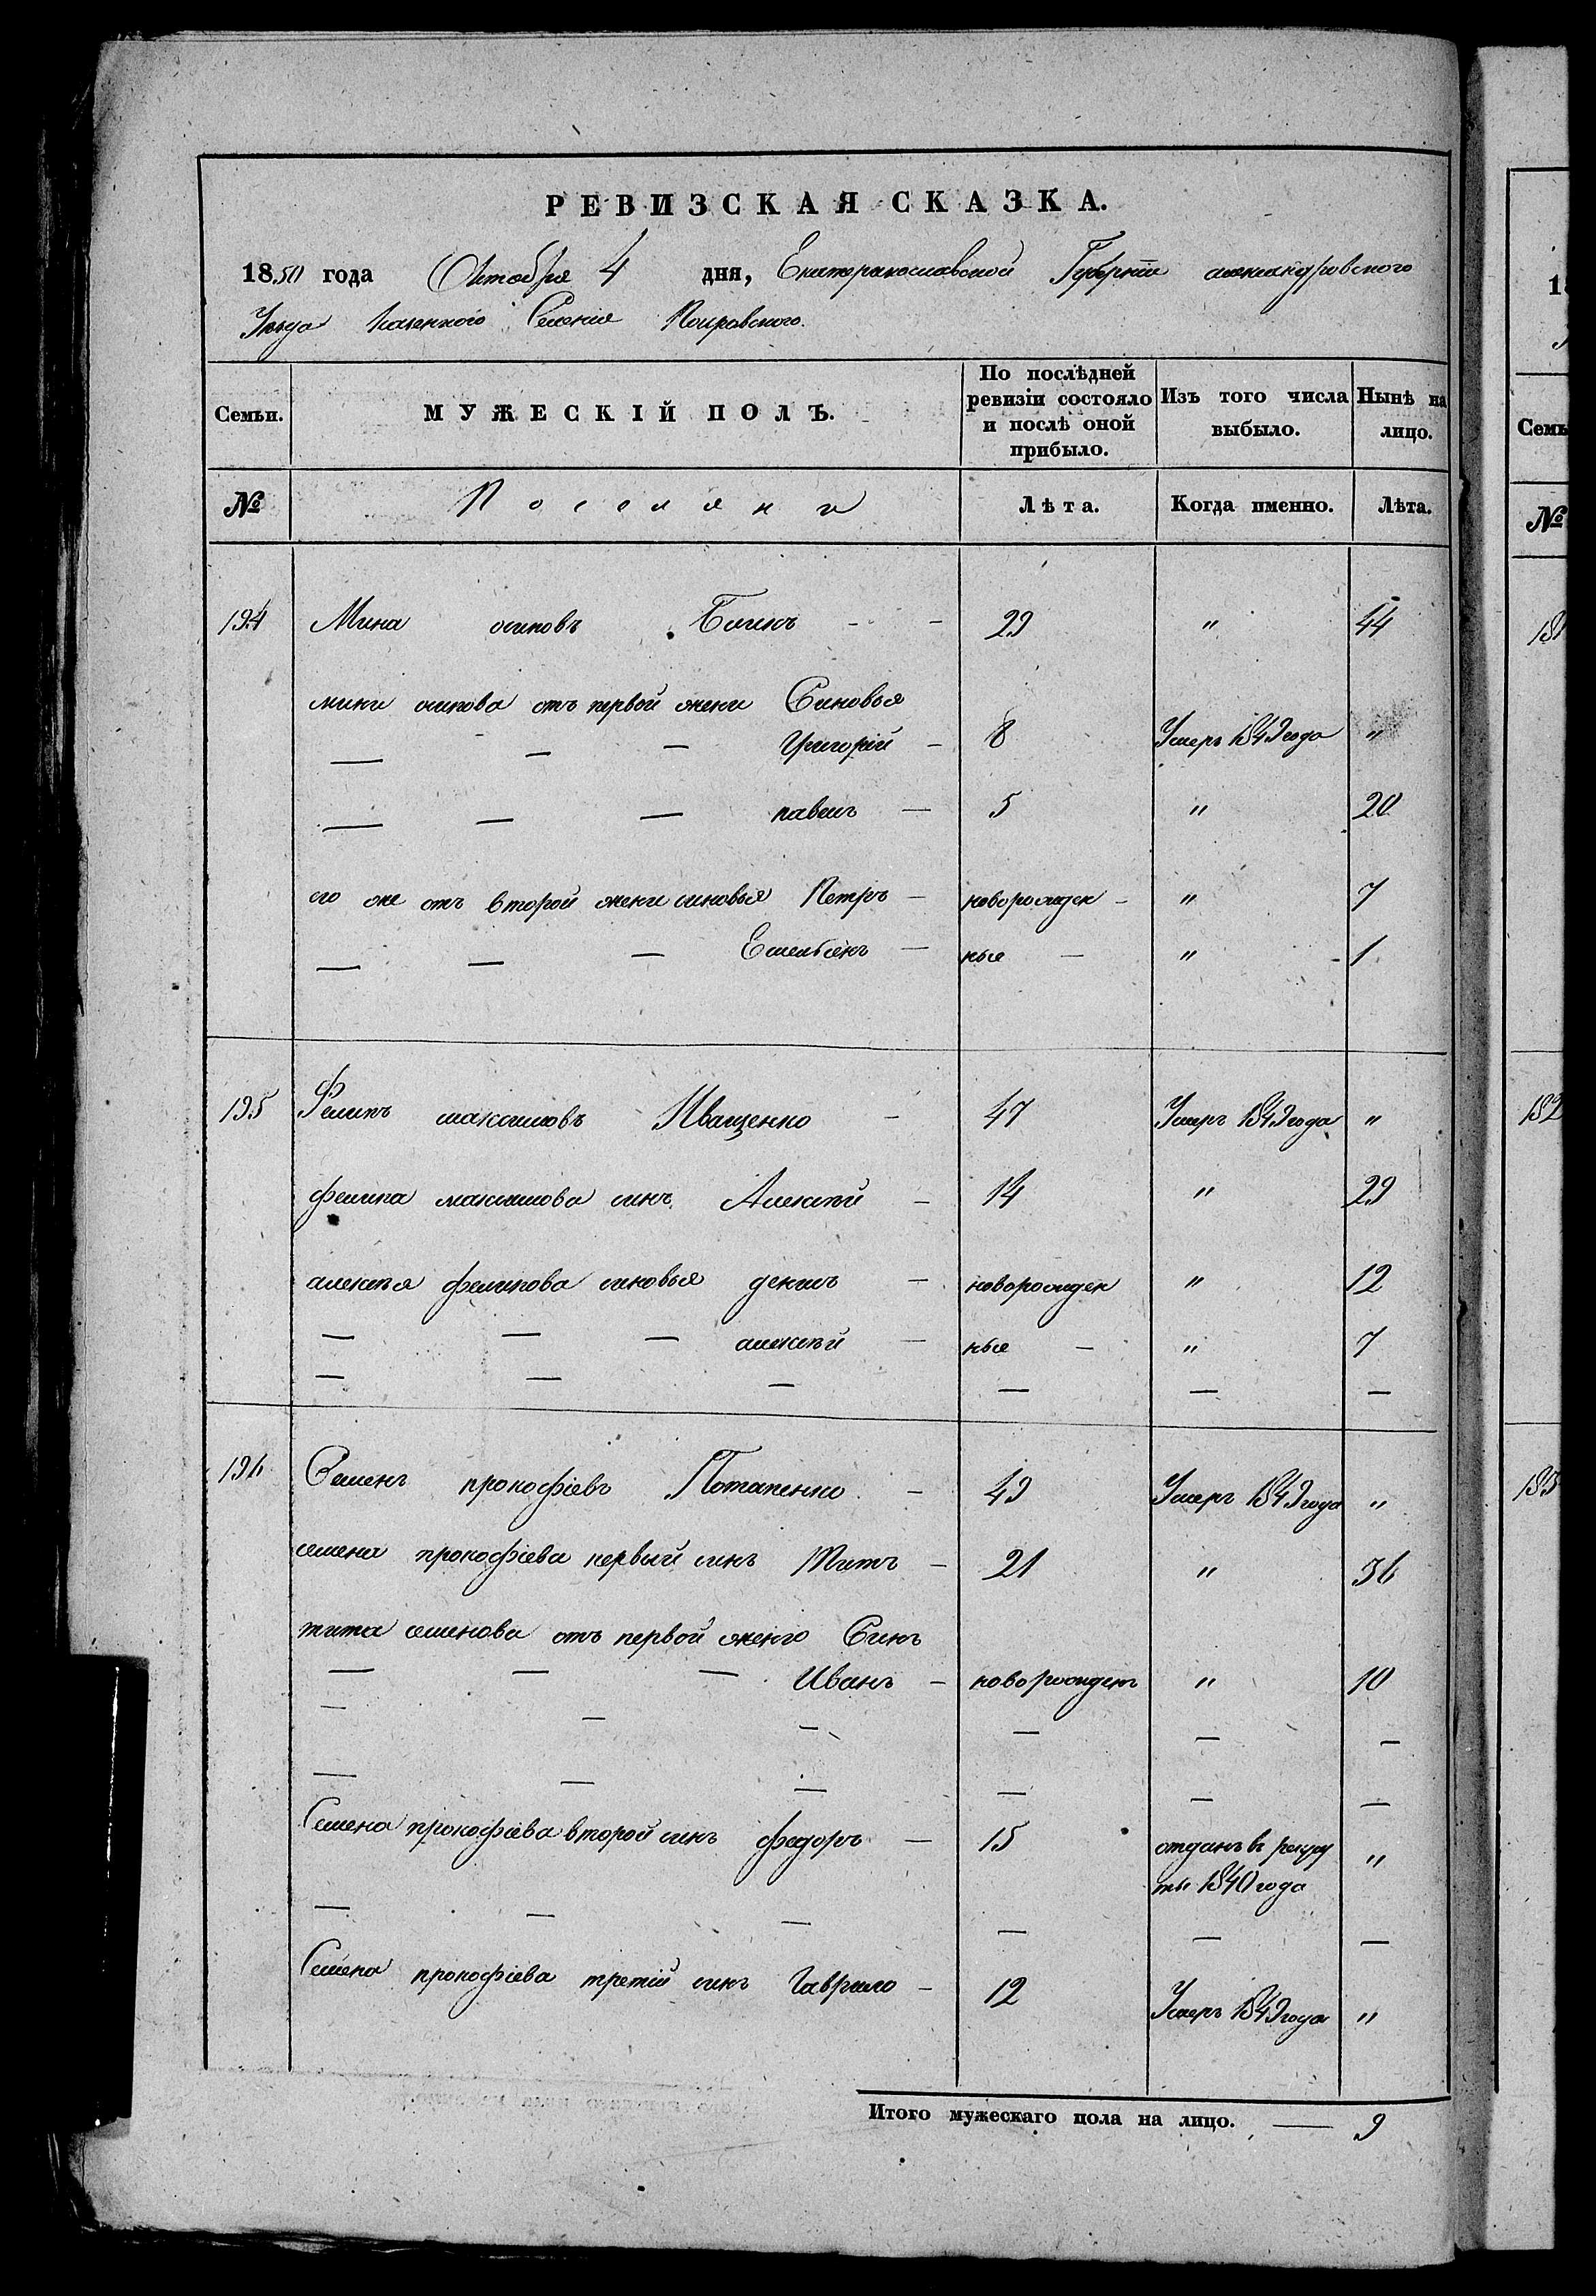 РЕВИЗСКАЯ СКАЗКА.
1850 года Октября 4 дня, Екатеринославской Губерніи александровского
Уезда Казенного Селенія Покровского.
Семьи.
МУЖЕСКІЙ ПОЛЪ.
По послѣдней
ревизіи состояло
и послѣ оной
прибыло.
Изъ того числа
выбыло.
Нынѣ на
лицо.
№
Поселяни
Лѣта.
Когда именно.
Лѣта.
194 Мина осиповъ - - 29 " 44
мини осипова отъ первой жени Синовья
— — — Григорій — 8 Умеръ 1849 года "
— — — павелъ — 5 " 20
его же отъ второй жени синовья Петръ — новорожден — " 7
— — — Емельянъ — ные — " 1
195 Фелипъ максимовъ Иващенко - 47 Умеръ 1849 года "
фелипа максимова синъ Алексѣй — 14 " 29
алексѣя фелипова синовья денисъ — новорожден " 12
— — — алексѣй — ные — " 7
— — — — — —
196 Семенъ прокофіевъ Потапенко — 49 Умеръ 1849 года "
семена прокофіева первый синъ Титъ — 21 " 36
тита семенова отъ первой жени Синъ
— — — Иванъ — новорожденъ " 10
— — — — — —
— — — — — —
Семена прокофіева второй синъ федоръ — 15 отданъ в рекру "
ты 1840 года
— — — — — —
Семена прокофіева третій синъ Гаврило — 12 Умеръ 1849 года "
Итого мужескаго пола на лицо. — 9
1
Семь
№
181
182
183